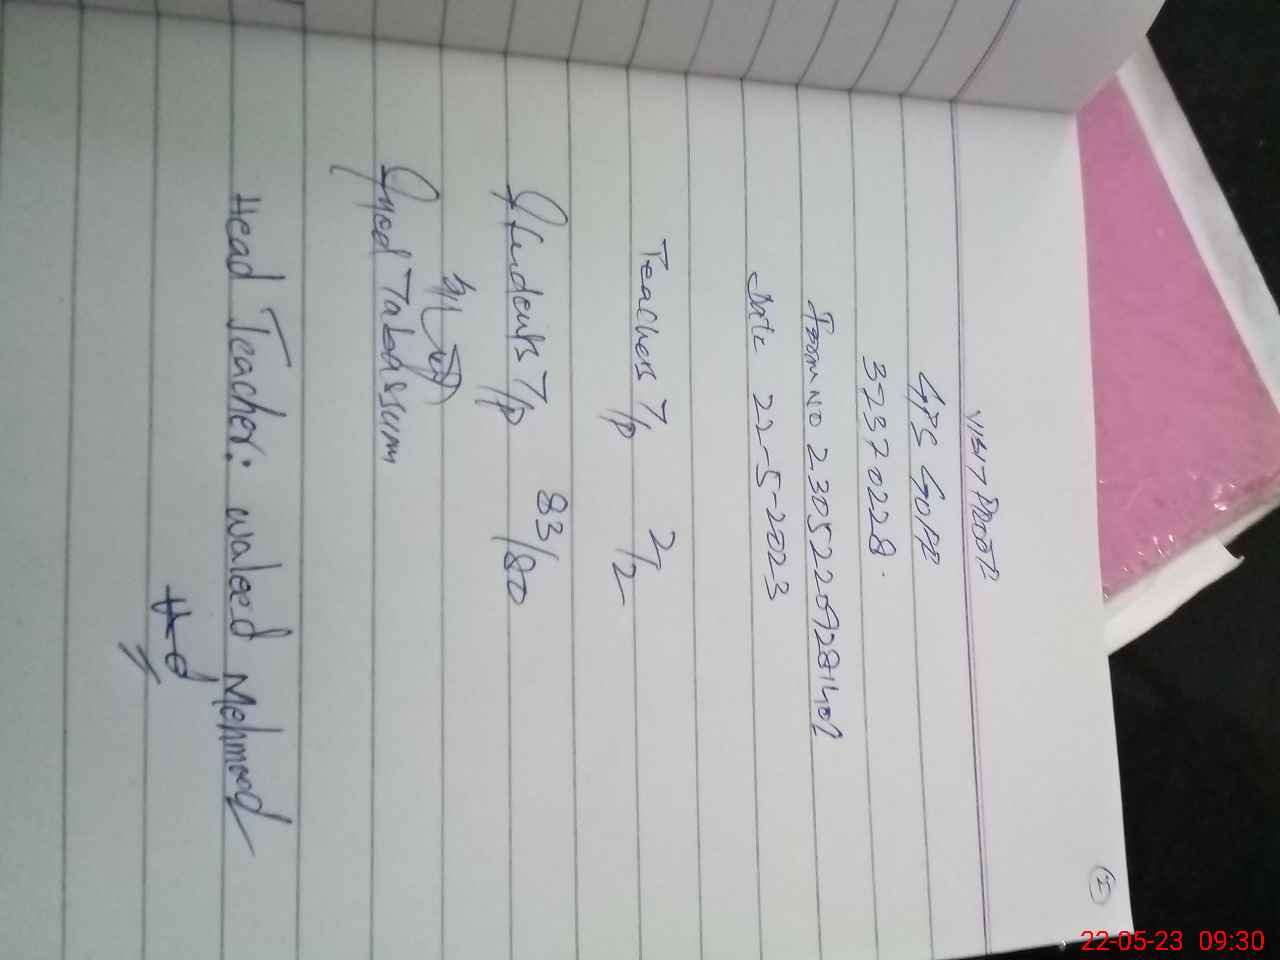 VISIT PROOF
GPS GOPE
32370228.
Form NO 2305220928
Date 22-5-2023
Teachers T/P 2/2
Students T/P 83/80
Syed Tabassum
Head Teacher: waleed Mehmood
22-05-23 09:30